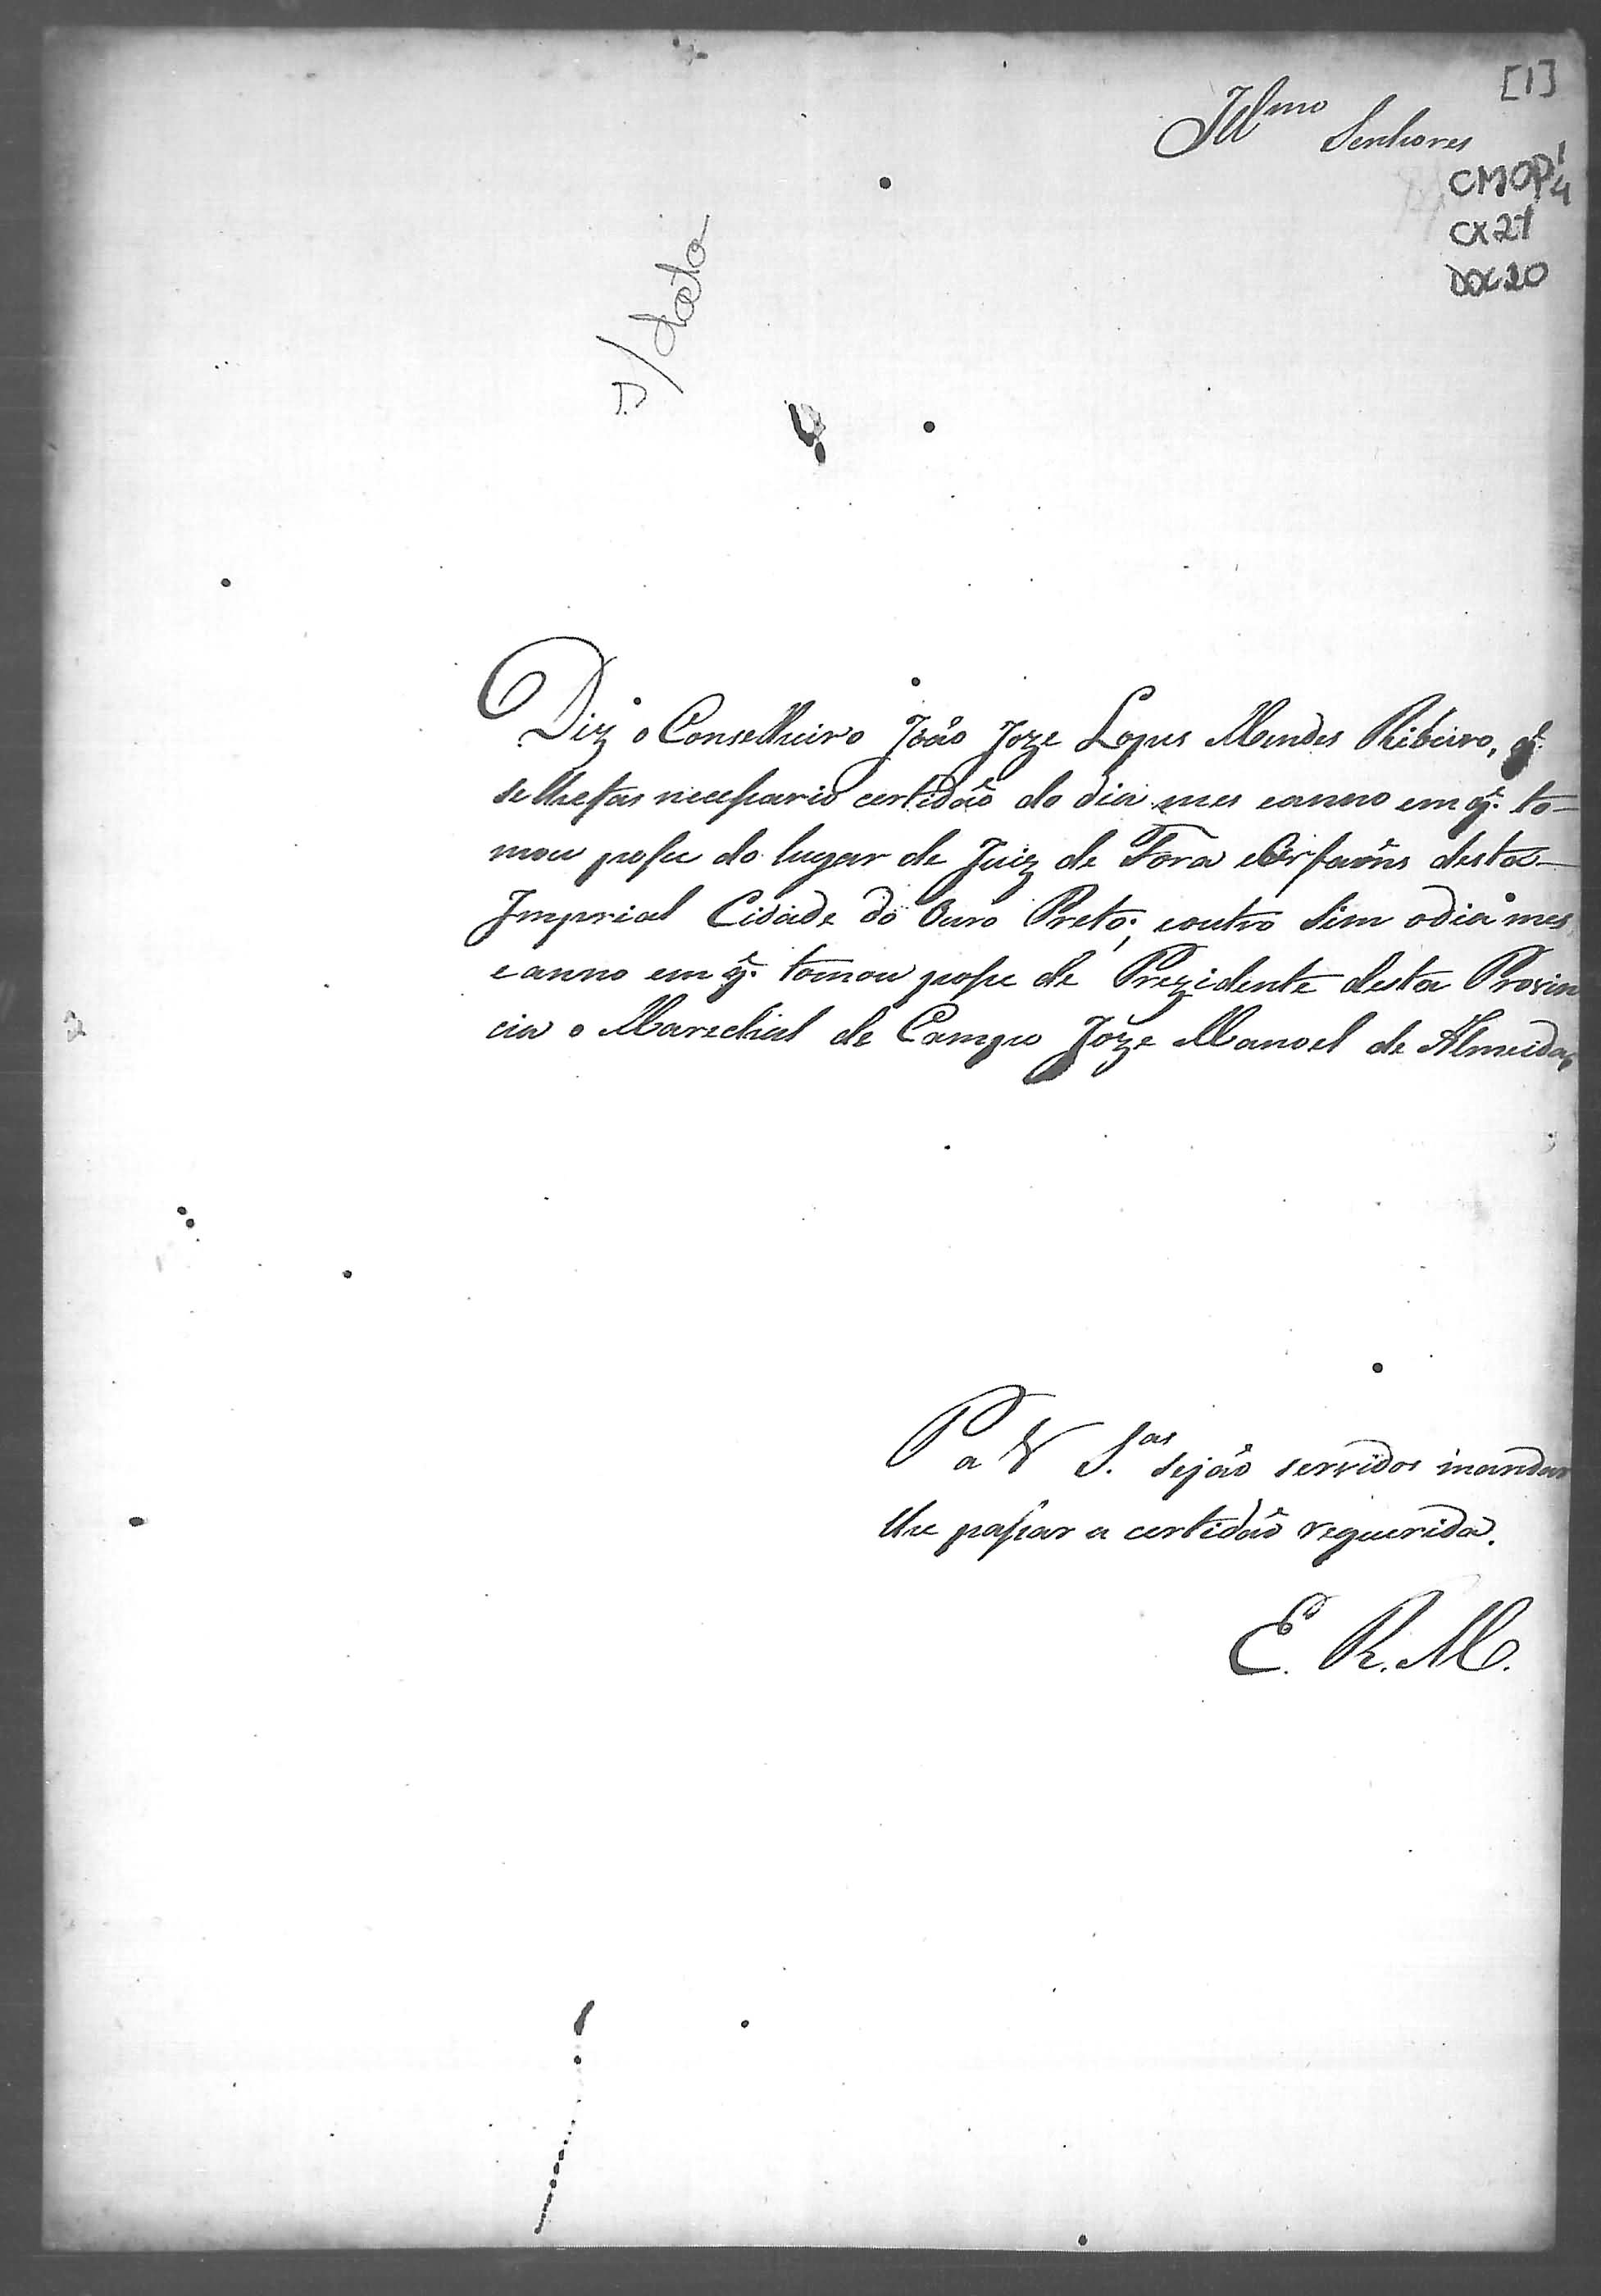 [1]
Illmo Senhores
CMOP 1/4
CX 21
DOC 20
s/ data
Diz o Conselheiro João Joze Lopes Mendes Ribeiro, q̃.
se lhe fas necessario certidão do dia mes e anno em q̃. to-
mou posse do lugar de Juiz de Fora e Orfaõns desta
Imperial Cidade do Ouro Preto; e outro sim o dia mes
e anno em q̃. tomou posse de Prezidente desta Provin
cia o Marechal de Campo Joze Manoel de Almeida,
P a V S.as sejão servidos mandar
lhe passar a certidão requerida.
E. R. M.